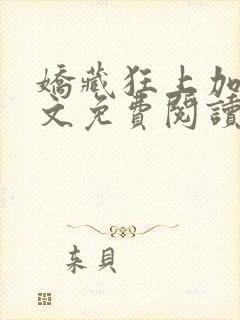 嬌藏狂上加
文免費閱讀
来貝